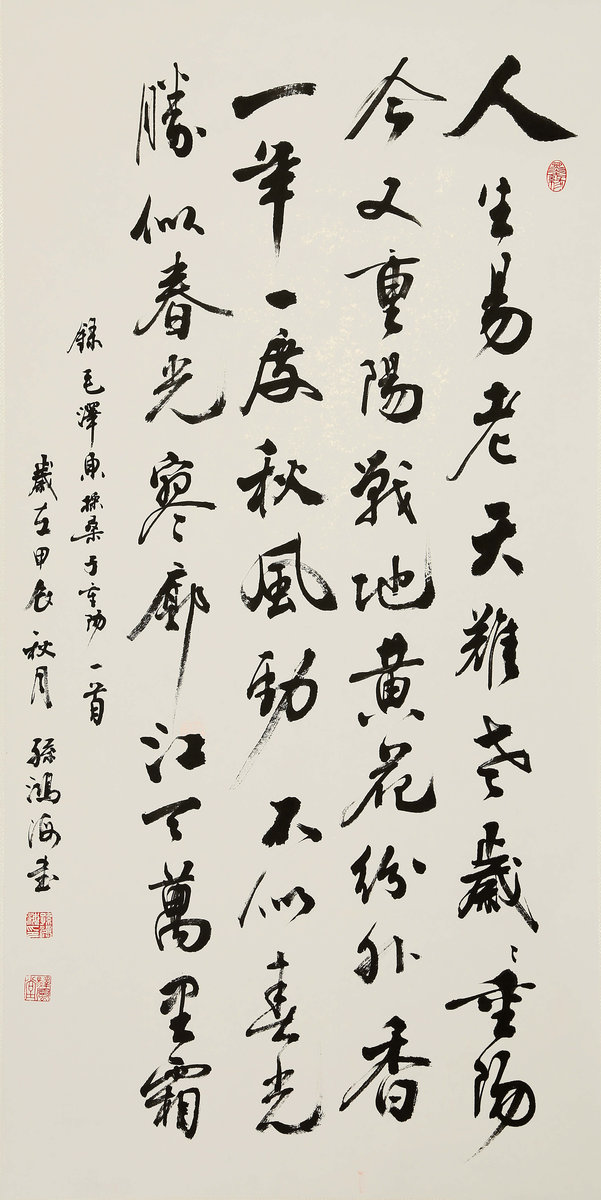 人生易老天難老歲〻重陽
今又重陽戰地黄花紛外香
一年一度秋風勁不似春光
勝似春光寥廓江天萬里霜
錄毛澤東採桑子重陽一首
歲在甲辰秋月孫鴻海書